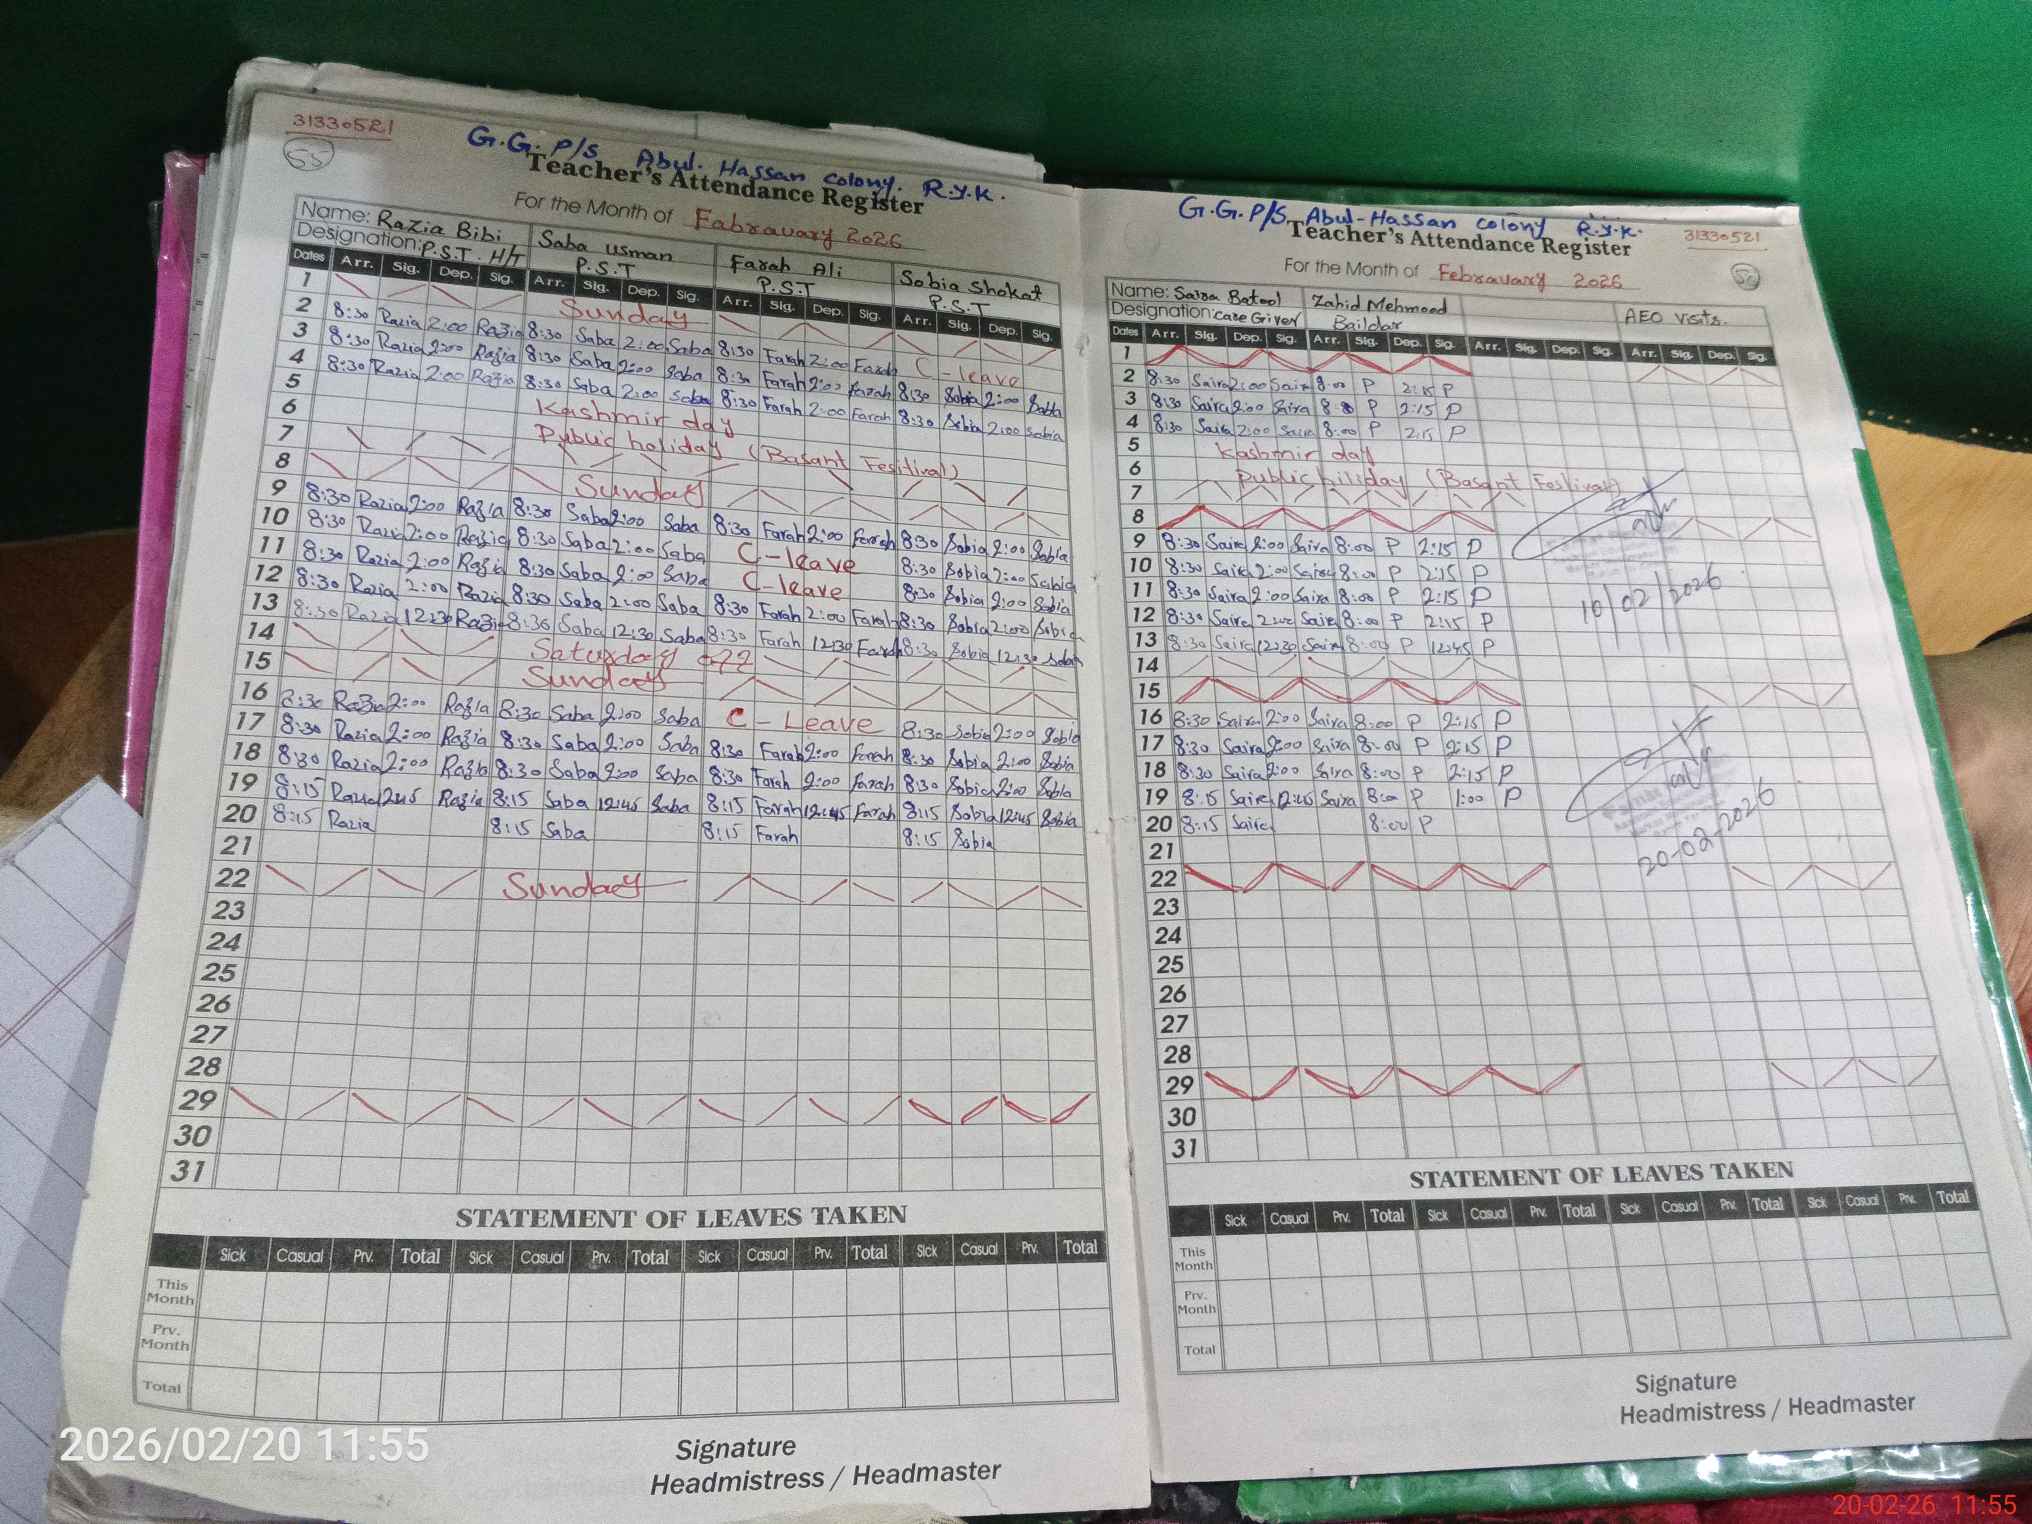 31330521
55
G.G. P/S Abul. Hassan colony. R.Y.K.
Teacher's Attendance Register
For the Month of Fabravary 2026
Name: Razia Bibi Saba usman Farah Ali Sobia Shokat
Designation: P.S.T. H/T P.S.T P.S.T P.S.T
Dates Arr. Sig. Dep. Sig. Arr. Sig. Dep. Sig. Arr. Sig. Dep. Sig. Arr. Sig. Dep. Sig.
1 Sunday
2 8:30 Razia 2:00 Razia 8:30 Saba 2:00 Saba 8:30 Farah 2:00 Farah C-leave
3 8:30 Razia 2:00 Razia 8:30 Saba 2:00 Saba 8:30 Farah 2:00 Farah 8:30 Sobia 2:00 Sobia
4 8:30 Razia 2:00 Razia 8:30 Saba 2:00 Saba 8:30 Farah 2:00 Farah 8:30 Sobia 2:00 Sobia
5 Kashmir day
6 Public holiday (Basant Festival)
7
8 Sunday
9 8:30 Razia 2:00 Razia 8:30 Saba 2:00 Saba 8:30 Farah 2:00 Farah 8:30 Sobia 2:00 Sobia
10 8:30 Razia 2:00 Razia 8:30 Saba 2:00 Saba C-leave 8:30 Sobia 2:00 Sobia
11 8:30 Razia 2:00 Razia 8:30 Saba 2:00 Saba C-leave 8:30 Sobia 2:00 Sobia
12 8:30 Razia 2:00 Razia 8:30 Saba 2:00 Saba 8:30 Farah 2:00 Farah 8:30 Sobia 2:00 Sobia
13 8:30 Razia 12:30 Razia 8:30 Saba 12:30 Saba 8:30 Farah 12:30 Farah 8:30 Sobia 12:30 Sobia
14 Saturday
15 Sunday
16 8:30 Razia 2:00 Razia 8:30 Saba 2:00 Saba C-Leave 8:30 Sobia 2:00 Sobia
17 8:30 Razia 2:00 Razia 8:30 Saba 2:00 Saba 8:30 Farah 2:00 Farah 8:30 Sobia 2:00 Sobia
18 8:30 Razia 2:00 Razia 8:30 Saba 2:00 Saba 8:30 Farah 2:00 Farah 8:30 Sobia 2:00 Sobia
19 8:15 Razia 12:45 Razia 8:15 Saba 12:45 Saba 8:15 Farah 12:45 Farah 8:15 Sobia 12:45 Sobia
20 8:15 Razia 8:15 Saba 8:15 Farah 8:15 Sobia
21
22 Sunday
23
24
25
26
27
28
29
30
31
STATEMENT OF LEAVES TAKEN
Sick Casual Prv. Total Sick Casual Prv. Total Sick Casual Prv. Total Sick Casual Prv. Total
This Month
Prv. Month
Total
Signature
Headmistress / Headmaster
2026/02/20 11:55
G.G.P/S. Abul-Hassan colony R.Y.K. 31330521
Teacher's Attendance Register
For the Month of Febravary 2026
Name: Saira Batool Zahid Mehmood AEO visits.
Designation: care Giver Baildar
Dates Arr. Sig. Dep. Sig. Arr. Sig. Dep. Sig. Arr. Sig. Dep. Sig. Arr. Sig. Dep. Sig.
1
2 8:30 Saira 2:00 Saira 8:00 P 2:15 P
3 8:30 Saira 2:00 Saira 8:00 P 2:15 P
4 8:30 Saira 2:00 Saira 8:00 P 2:15 P
5 Kashmir day
6 Public hiliday (Basant Festival)
7
8
9 8:30 Saira 2:00 Saira 8:00 P 2:15 P
10 8:30 Saira 2:00 Saira 8:00 P 2:15 P
11 8:30 Saira 2:00 Saira 8:00 P 2:15 P 10/02/2026
12 8:30 Saira 2:00 Saira 8:00 P 2:15 P
13 8:30 Saira 12:30 Saira 8:00 P 12:45 P
14
15
16 8:30 Saira 2:00 Saira 8:00 P 2:15 P
17 8:30 Saira 2:00 Saira 8:00 P 2:15 P
18 8:30 Saira 2:00 Saira 8:00 P 2:15 P
19 8:15 Saira 12:45 Saira 8:00 P 1:00 P
20 8:15 Saira 8:00 P 20-02-2026
21
22
23
24
25
26
27
28
29
30
31
STATEMENT OF LEAVES TAKEN
Sick Casual Prv. Total Sick Casual Prv. Total Sick Casual Prv. Total Sick Casual Prv. Total
This Month
Prv. Month
Total
Signature
Headmistress / Headmaster
20-02-26 11:55